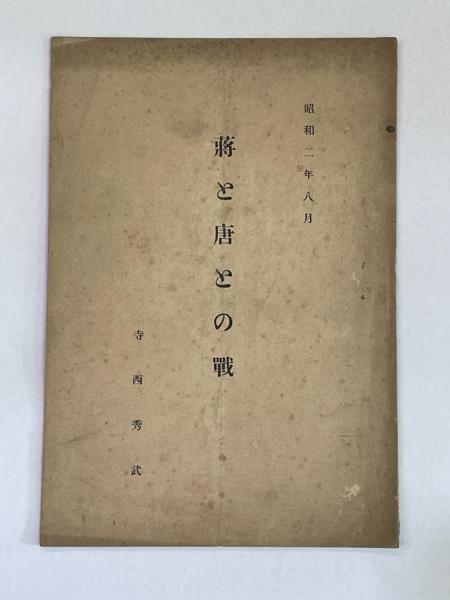 昭和二年八月
蔣と唐との戰
寺西秀武